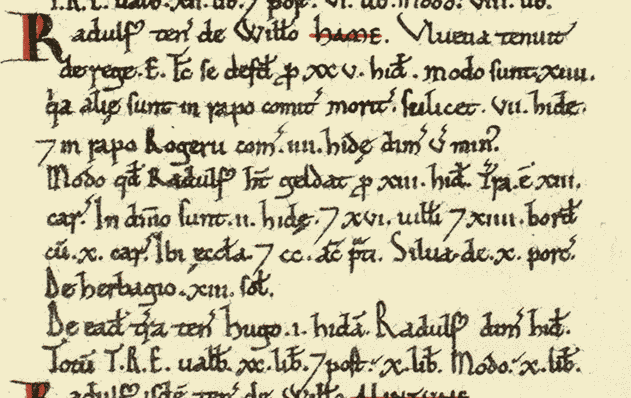 T.R.E. ualb̄. xii. lib̄. 7 post. vi. lib̄. modo. viii. lib̄.
Radulf' ten' de Willo hame. Vlueua tenuit
de rege .E. Tc̄ se defd̄ ꝑ xxv. hid̄. modo sunt. xiiii.
q̄a alię sunt in rapo comit' morit'. scilicet. vii. hidę.
7 in rapo Rogerii com'. iiii. hidę dim' v' min'.
Modo qd̄ Radulf' ht̄ geldat ꝑ xiii. hid̄. Tr̄a. ē xiii.
car'. In dn̄io sunt. ii. hidę. 7 xvi. uill̄i 7 xiiii. bord̄
cū. x. car'. Ibi ęccl̄a. 7 cc. ac̄ p̄ti. Silua de. x. porc'.
De herbagio. xiii. sol̄.
De ead̄ tr̄a ten' hugo. i. hidā. Radulf' dim' hid̄.
Totū T.R.E. ualb̄. xx. lib̄. 7 post. x. lib̄. Modo. x. lib̄.
Radulf' isdē ten' de Willo